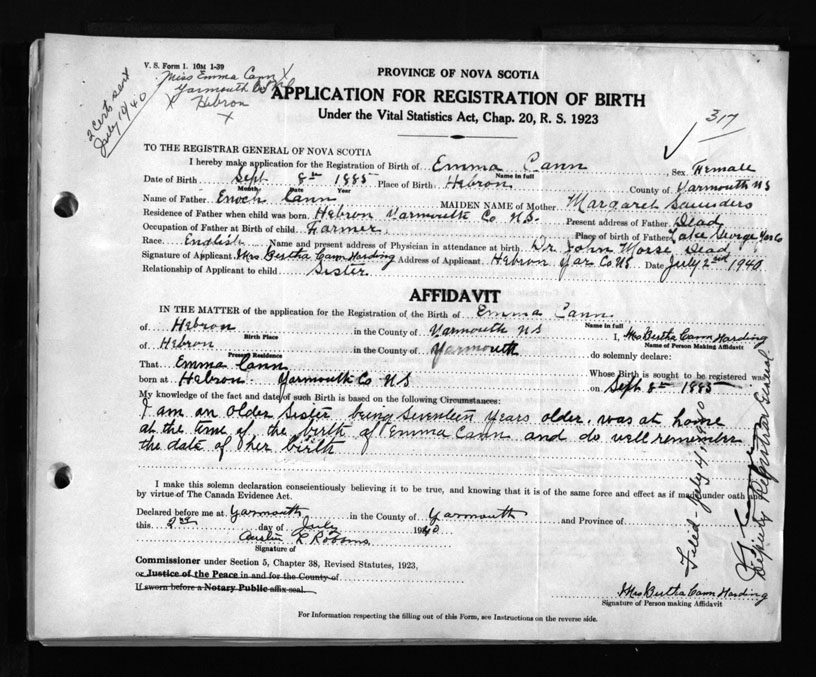 V. S. Form 1. 10M 1-39
Miss Emma Cann X
Yarmouth Co
X Hebron
X
2 Cert sent
July 1940
PROVINCE OF NOVA SCOTIA
APPLICATION FOR REGISTRATION OF BIRTH
Under the Vital Statistics Act, Chap. 20, R. S. 1923
317
TO THE REGISTRAR GENERAL OF NOVA SCOTIA
I hereby make application for the Registration of Birth of Emma Cann, Sex Female
Name in full
Date of Birth Sept 8th 1885 Place of Birth Hebron County of Yarmouth NS
Month Date Year
Name of Father Enoch Cann MAIDEN NAME of Mother Margaret Saunders
Residence of Father when child was born Hebron Yarmouth Co N.S. Present address of Father Dead
Occupation of Father at Birth of child Farmer Place of birth of Father Lake George Yar Co
Race English Name and present address of Physician in attendance at birth Dr. John Morse Dead
Signature of Applicant Mrs. Bertha Cann Harding Address of Applicant Hebron Yar Co NS Date July 2nd 1940
Relationship of Applicant to child Sister
AFFIDAVIT
IN THE MATTER of the application for the Registration of the Birth of Emma Cann
Name in full
of Hebron in the County of Yarmouth NS I, Mrs Bertha Cann Harding
Birth Place Name of Person Making Affidavit
of Hebron in the County of Yarmouth do solemnly declare:
Present Residence
That Emma Cann Whose Birth is sought to be registered was
born at Hebron Yarmouth Co NS on Sept 8th 1885
My knowledge of the fact and date of such Birth is based on the following Circumstances:
I am an older Sister being Seventeen years older, was at home
at the time of the birth of Emma Cann and do well remember
the date of her birth
I make this solemn declaration conscientiously believing it to be true, and knowing that it is of the same force and effect as if made under oath and
by virtue of The Canada Evidence Act.
Declared before me at Yarmouth in the County of Yarmouth and Province of
this 2nd day of July 1940
Austin L Robbins
Signature of
Commissioner under Section 5, Chapter 38, Revised Statutes, 1923,
or Justice of the Peace in and for the County of
If sworn before a Notary Public affix seal.
Mrs Bertha Cann Harding
Signature of Person making Affidavit
For Information respecting the filling out of this Form, see Instructions on the reverse side.
Filed - July 4, 1940
Deputy Registrar General